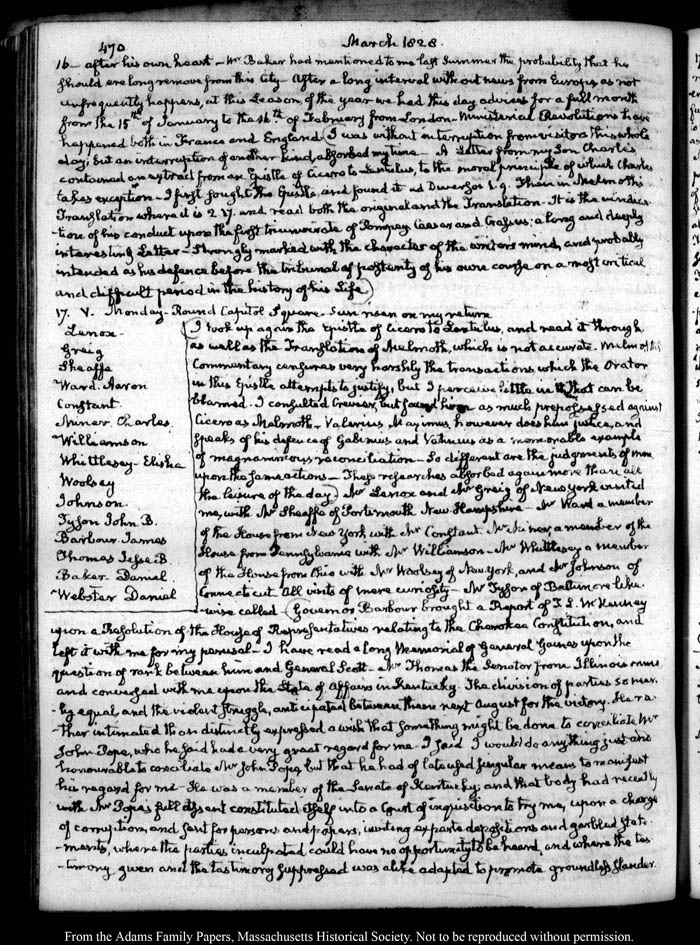 470
March 1828.
16. — after his own heart — Mr Baker had mentioned to me last Summer the probability that he
should ere long remove from this City — After a long interval without news from Europe, as not
unfrequently happens, at this Season of the year we had this day advices for a full month
from the 15th of January to the 14th of February from London. Ministerial Revolutions have
happened both in France and England. I was without interruption from visitors this whole
day; but an interruption of another kind absorbed my time — A Letter from my Son Charles
contained an extract from an Epistle of Cicero to Lentulus, to the moral principle of which Charles
takes exception — I first sought the Epistle, and found it ad Diversos 1. 9. Then in Melmoth's
Translation where it is 2. 17. and read both the original and the Translation. It is the vindica-
-tion of his conduct upon the first triumvirate of Pompey Caesar and Crassus; a long and deeply
interesting Letter — Strongly marked with the character of the writer's mind, and probably
intended as his defence before the tribunal of posterity of his own course on a most critical
and difficult period in the history of his Life.)
17. V. Monday. Round Capitol Square — Sun risen on my return
Lenox.
Greig
Sheaffe
Ward. Aaron
Constant
Miner Charles
Williamson
Whittlesey. Elisha
Woolsey
Johnson.
Tyson John B.
Barbour James
Thomas Jesse B.
Baker Daniel
Webster Daniel
(I took up again the epistle of Cicero to Lentulus, and read it through
as well as the Translation of Melmoth, which is not accurate. Melmoth's
Commentary censures very harshly the transactions which the Orator
in this Epistle attempts to justify, but I perceive little in it that can be
blamed. I consulted Crevier, but found him as much prepossessed against
Cicero as Melmoth — Valerius Maximus however does him justice, and
speaks of his defence of Gabinius and Vatinius as a memorable example
of magnanimous reconciliation — So different are the judgments of men
upon the same actions — These researches absorbed again more than all
the leisure of the day.) Mr Lenox and Mr Greig of New York visited
me, with Mr Sheaffe of Portsmouth New Hampshire — Mr Ward a member
of the House from New York with Mr Constant. Mr Miner a member of the
House from Pennsylvania with Mr Williamson — Mr Whittlesey a member
of the House from Ohio with Mr Woolsey of New York, and Mr Johnson of
Connecticut. All visits of mere curiosity — Mr Tyson of Baltimore like-
-wise called (Governor Barbour brought a Report of T. L. McKenney
upon a Resolution of the House of Representatives relating to the Cherokee Constitution, and
left it with me for my perusal — I have read a long Memorial of General Gaines upon the
question of rank between him and General Scott — Mr Thomas the Senator from Illinois came
and conversed with me upon the State of Affairs in Kentucky. The division of parties so near-
-ly equal and the violent struggle, anticipated between them next August for the victory. He ra-
-ther intimated than distinctly expressed a wish that something might be done to conciliate Mr
John Pope, who he said had a very great regard for me — I said I would do anything just and
honourable to conciliate Mr John Pope, but that he had of late used singular means to manifest
his regard for me — He was a member of the Senate of Kentucky, and that body had recently
with Mr Pope's full assent constituted itself into a Court of inquisition to try me, upon a charge
of corruption, and sent for persons and papers, inviting ex parte depositions and garbled state-
-ments, where the parties inculpated could have no opportunity to be heard, and where the tes-
-timony given and the testimony suppressed was alike adapted to promote groundless slander.
From the Adams Family Papers, Massachusetts Historical Society. Not to be reproduced without permission.